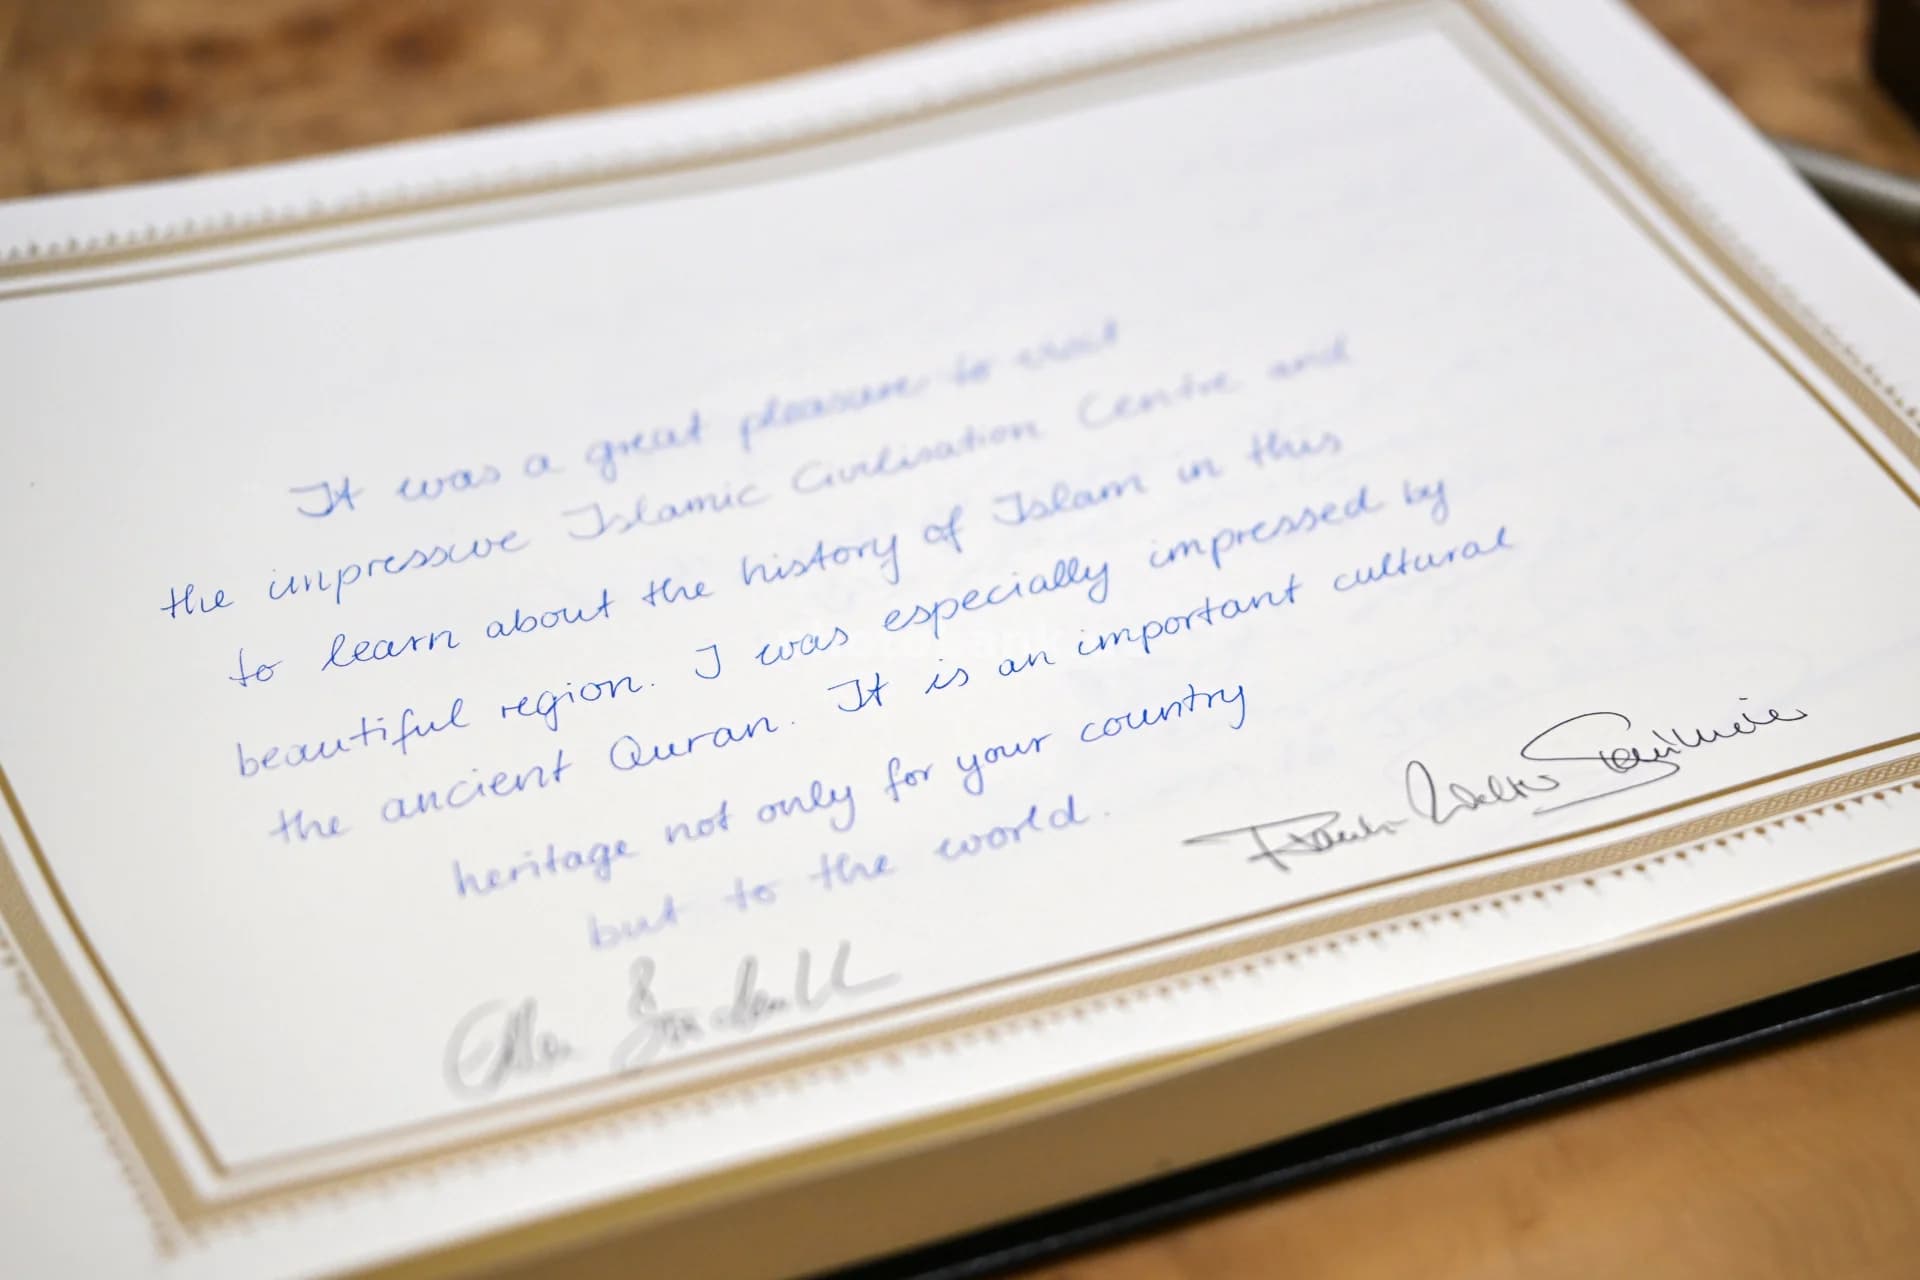 It was a great pleasure to visit
the impressive Islamic Civilisation Centre and
to learn about the history of Islam in this
beautiful region. I was especially impressed by
the ancient Quran. It is an important cultural
heritage not only for your country
but to the world.
Frank-Walter Steinmeier